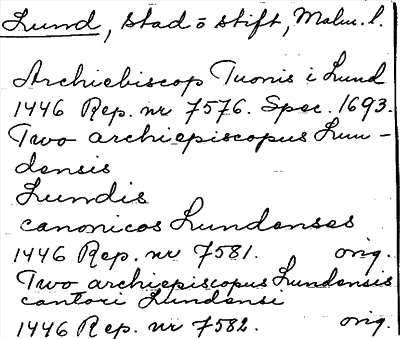 Lund, stad o stift, Malm. l.
Archiebiscop Tuonis i Lund
1446 Rep. nr 7576. Spec. 1693.
Two archiepiscopus Lun-
densis
Lundis
canonicos Lundenses
1446 Rep. nr 7581. orig.
Two archiepiscopus Lundensis
cantori Lundensi
1446 Rep. nr 7582. orig.